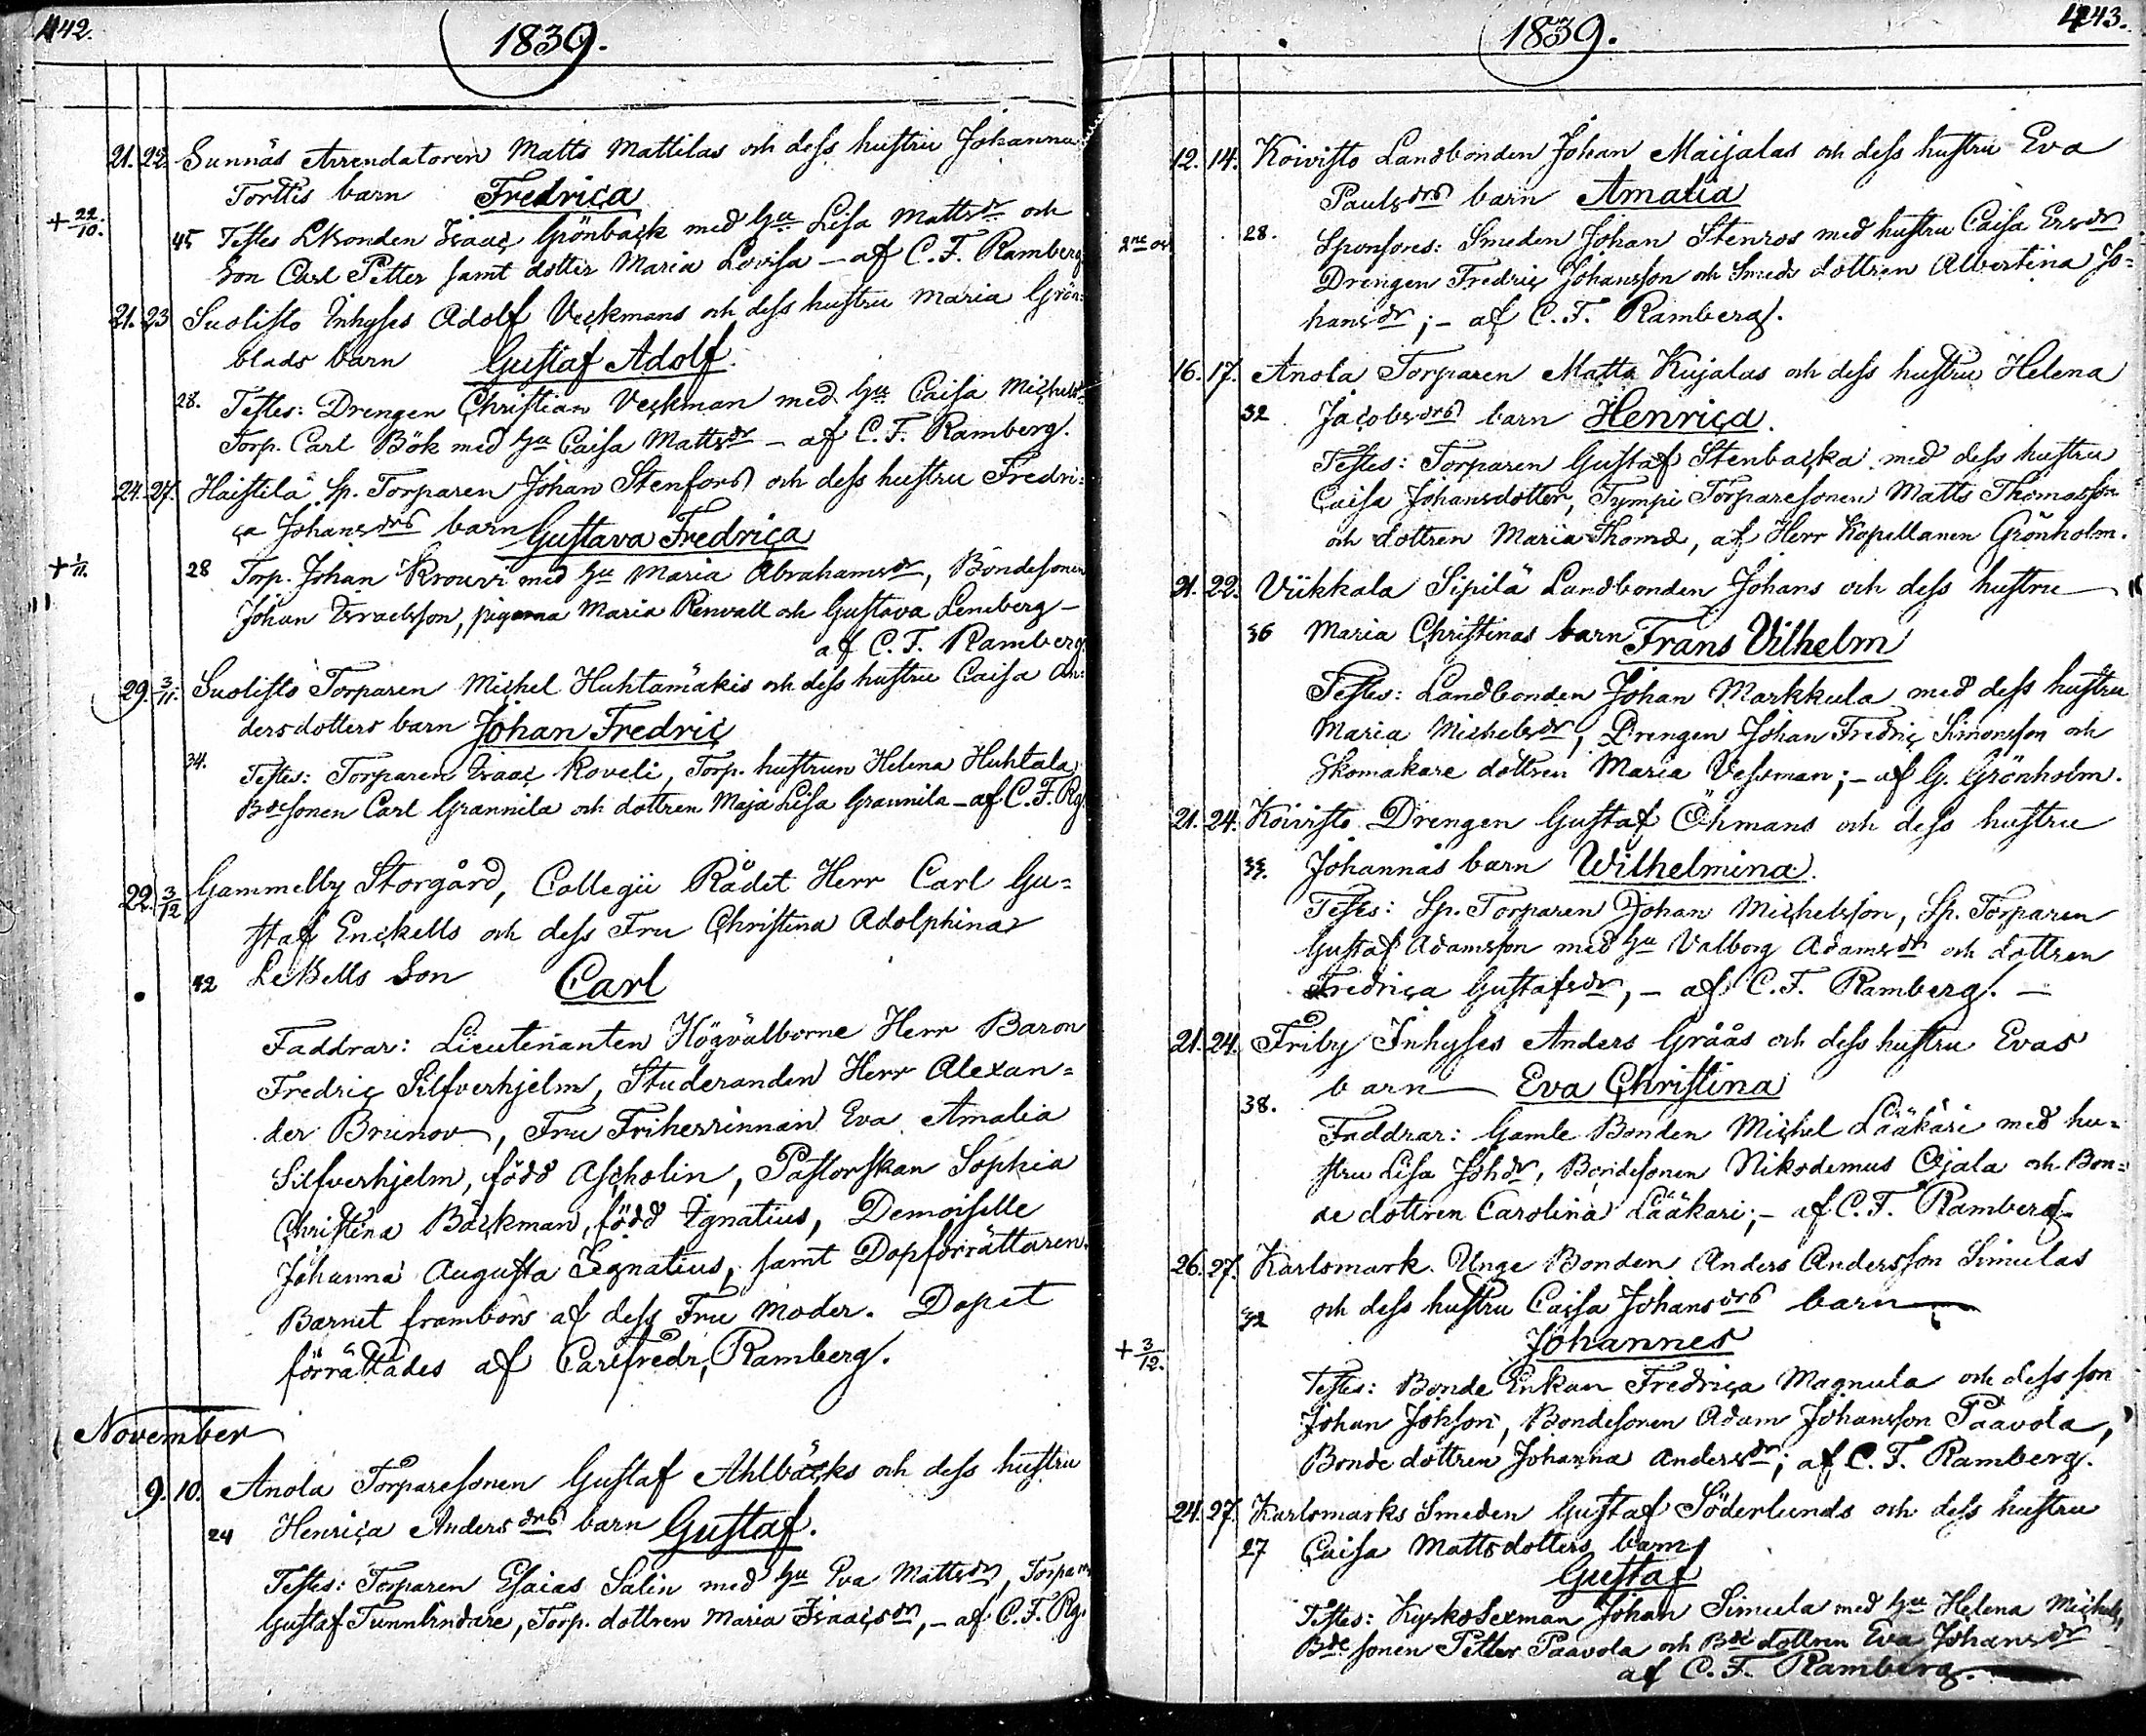 442.
1839.
21. 22. Sunnäs Arrendatoren Matts Mattilas och dess hustru Johanna
Torttis barn Fredrica
+ 22/10.
45 Testes Lbonden Isaac Grönback med Hu Lisa Mattsdr och
Son Carl Petter samt dotter Maria Lovisa – af C. F. Ramberg
21. 23 Suolisto Inhyses Adolf Veckmans och dess hustru Maria Grön-
blads barn Gustaf Adolf.
28. Testes: Drengen Christian Veckman med Hu Caisa Michelsdr
Torp. Carl Bök med Hu Caisa Mattsdr – af C. F. Ramberg.
24. 27. Haistila Sp. Torparen Johan Stenfors och dess hustru Fredri-
ca Johansdrs barn Gustava Fredrica
+ 1/11.
28 Torp. Johan Krouvi med Hu Maria Abrahamsdr, Bondesonen
Johan Israelsson, pigorna Maria Renvall och Gustava Leneberg –
af C. F. Ramberg.
29. 3/11. Suolisto Torparen Michel Huhtamäkis och dess hustru Caisa An-
dersdotters barn Johan Fredric
34. Testes: Torparen Isaac Roveli, Torp. hustrun Helena Huhtala
Bdesonen Carl Grannila och dottren Maja Lisa Grannila – af C. F. Rg.
22. 3/12 Gammelby Storgård, Collegii Rådet Herr Carl Gu-
staf Enckells och dess Fru Christina Adolphina
32 LeBells Son Carl
Faddrar: Lieutenanten Högvälborne Herr Baron
Fredric Silfverhjelm, Studeranden Herr Alexan-
der Brunov, Fru Friherrinnan Eva Amalia
Silfverhjelm, född Ascholin, Pastorskan Sophia
Christina Bäckman, född Ignatius, Demoiselle
Johanna Augusta Ignatius, samt Dopförrättaren.
Barnet frambars af dess Fru Moder. Dopet
förrättades af Carl Fredr. Ramberg.
November
9. 10. Anola Torparesonen Gustaf Ahlbäcks och dess hustru
24 Henrica Andersdrs barn Gustaf.
Testes: Torparen Esaias Salin med Hu Eva Mattsdr, Torparen
Gustaf Tunnbindare, Torp. dottren Maria Isaacsdr, – af C. F. Rg.
443.
1839.
12. 14. Koivisto Landbonden Johan Maijalas och dess hustru Eva
Paulsdrs barn Amalia
28. Sponsores: Smeden Johan Stenros med hustru Caisa Ersdr
Drengen Fredric Johansson och Smeds dottren Albertina Jo-
hansdr; – af C. F. Ramberg.
16. 17. Anola Torparen Matts Kujalas och dess hustru Helena
32 Jacobsdrs barn Henrica.
Testes: Torparen Gustaf Stenbacka med dess hustru
Caisa Johansdotter, Tympi Torparesonen Matts Thomasson
och dottren Maria Thomd, af Herr Kapellanen Grönholm.
21. 22. Viikkala Sipilä Landbonden Johans och dess hustru
36 Maria Christinas barn Frans Vilhelm
Testes: Landbonden Johan Markkula med dess hustru
Maria Michelsdr, Drengen Johan Fredric Simonsson och
Skomakare dottren Maria Vessman; – af G. Grönholm.
21. 24. Koivisto Drengen Gustaf Öhmans och dess hustru
33. Johannas barn Wilhelmina.
Testes: Sp. Torparen Johan Michelsson, Sp. Torparen
Gustaf Adamsson med Hu Valborg Adamsdr och dottren
Fredrica Gustafsdr, – af C. F. Ramberg. –
21. 24. Friby Inhyses Anders Gråås och dess hustru Evas
barn Eva Christina
38. Faddrar: Gamle Bonden Michel Lääkäri med hu-
stru Lisa Johdr, Bondesonen Nikodemus Ojala och Bon-
de dottren Carolina Lääkari; – af C. F. Ramberg
26. 27. Karlsmark Unge Bonden Anders Andersson Simulas
32 och dess hustru Caisa Johansdrs barn
Johannes
+ 3/12.
Testes: Bonde Enkan Fredrica Magnula och dess son
Johan Johsson, Bondesonen Adam Johansson Paavola,
Bonde dottren Johanna Andersdr; af C. F. Ramberg.
24. 27. Karlsmarks Smeden Gustaf Söderlunds och dess hustru
27 Caisa Mattsdotters barn
Gustaf
Testes: Kyrko Sexman Johan Simula med Hu Helena Michels
Bde sonen Petter Paavola och Bde dottren Eva Johansdr
af C. F. Ramberg.